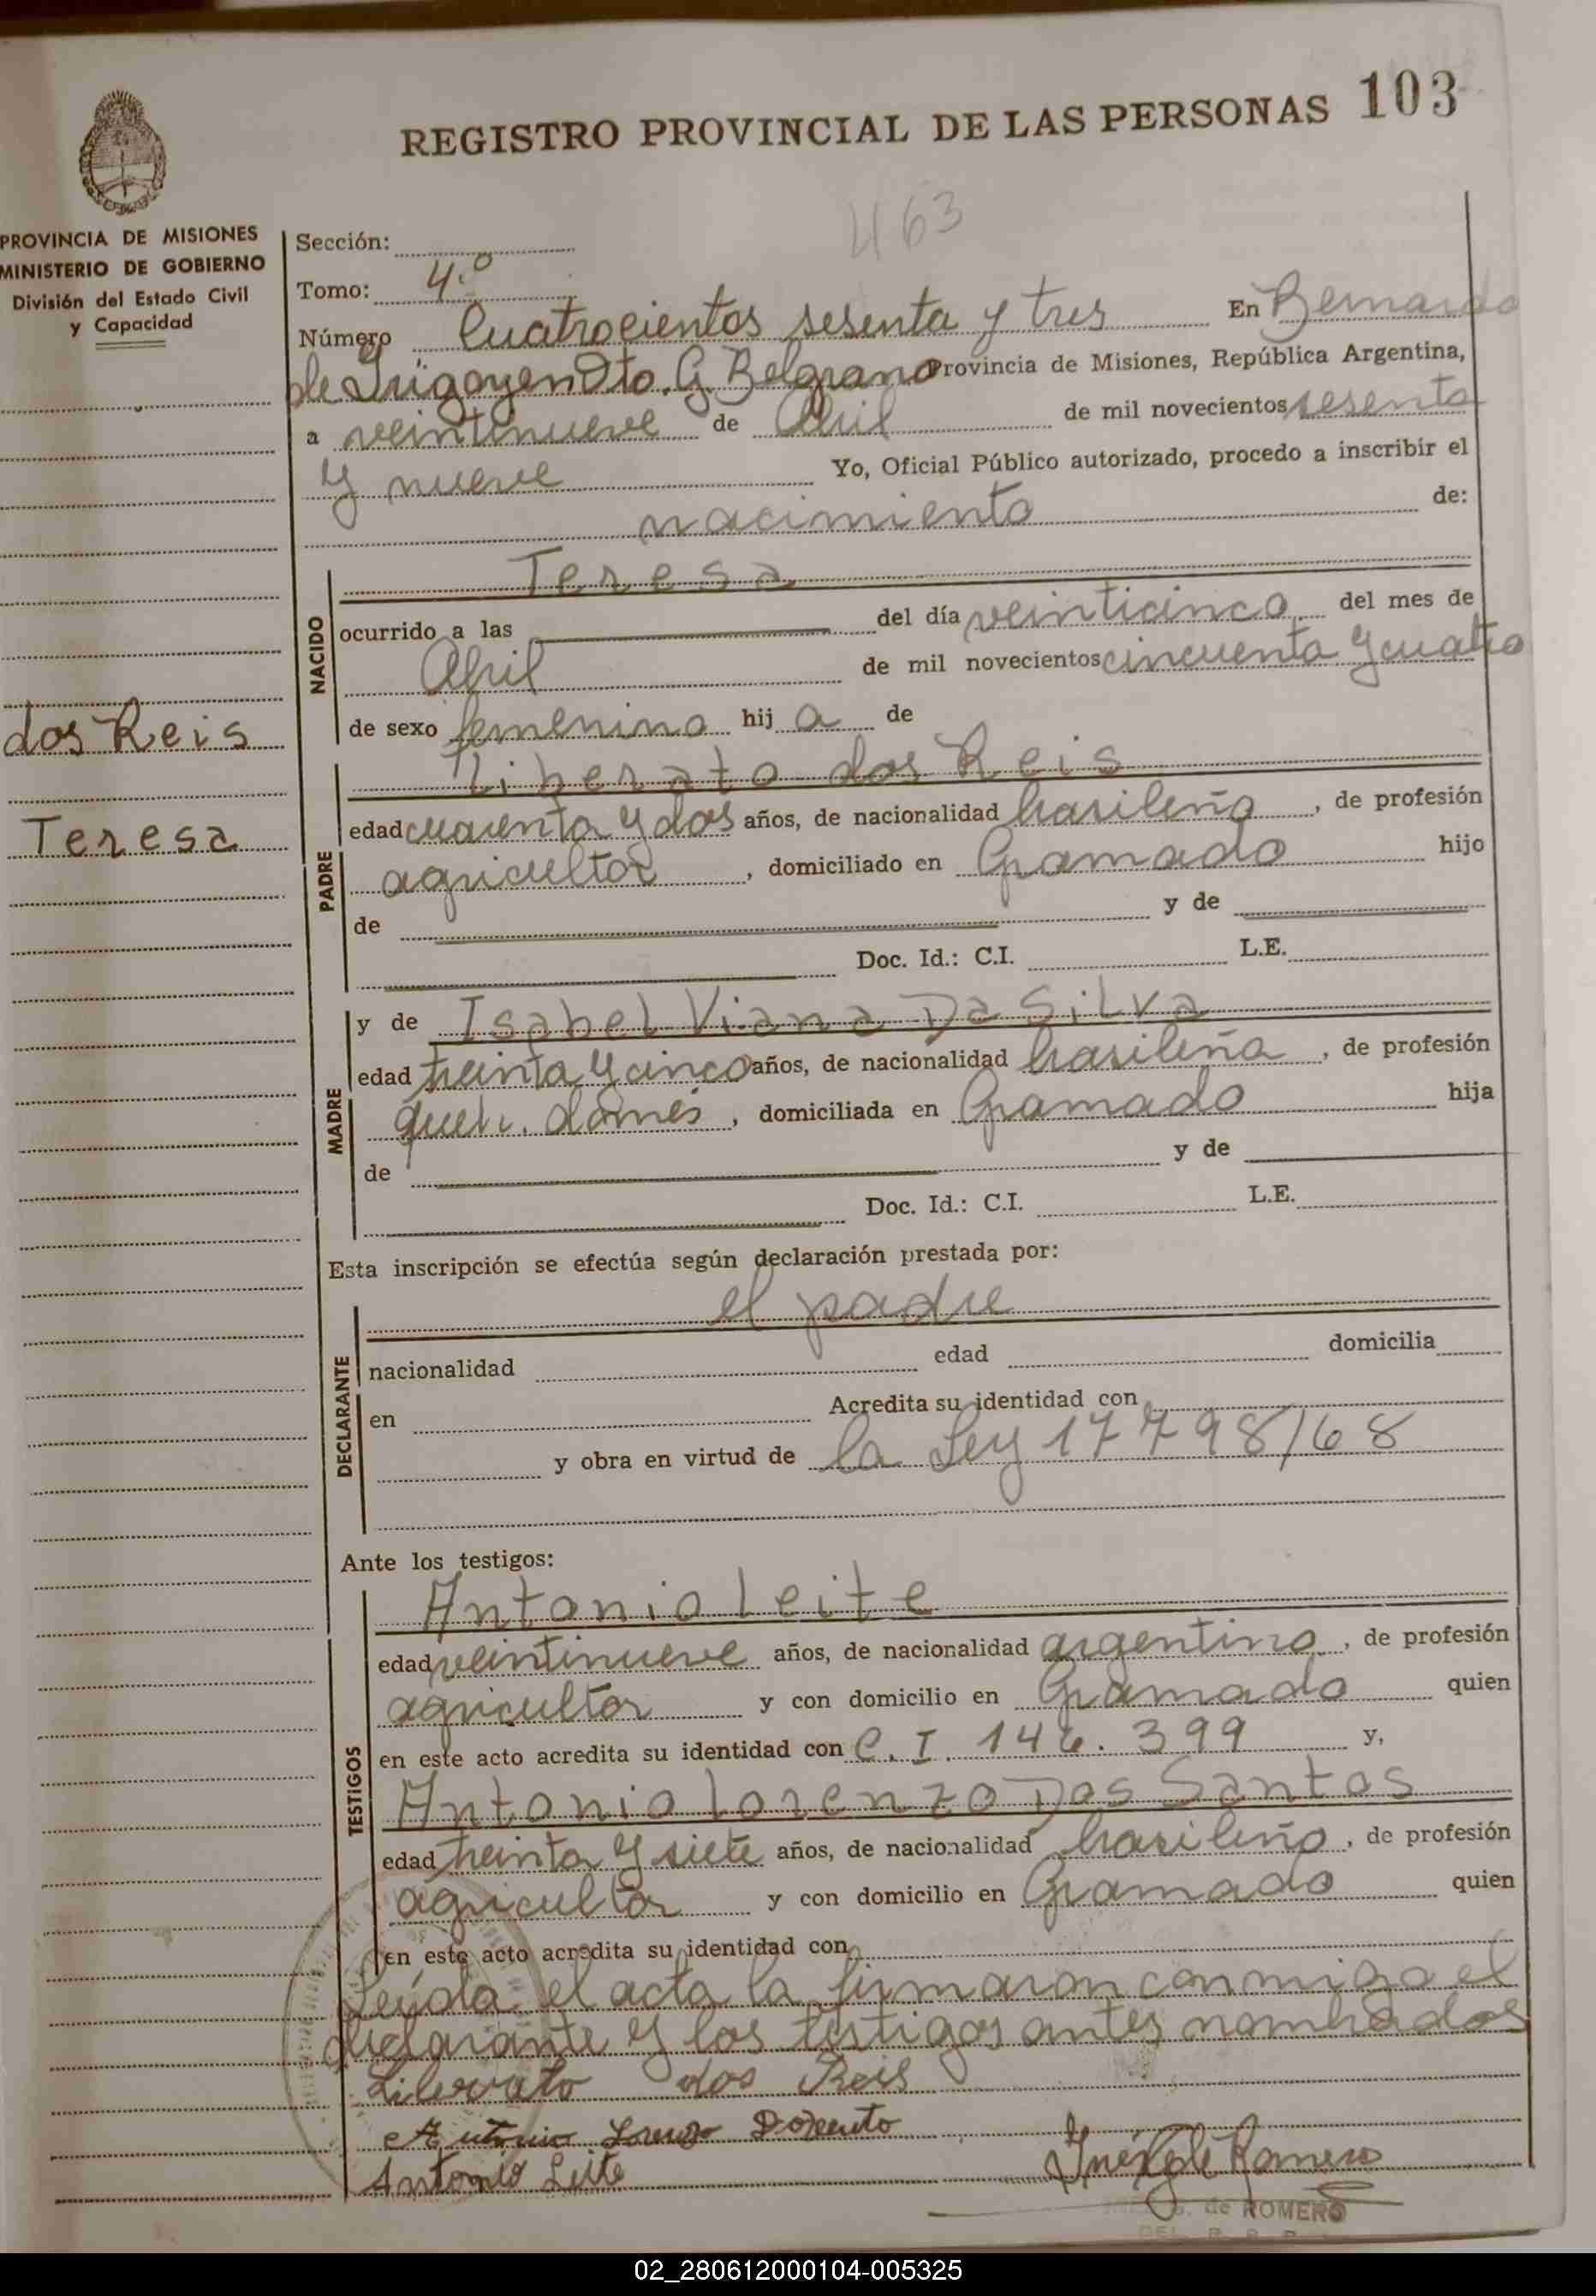 REGISTRO PROVINCIAL DE LAS PERSONAS 103
463
PROVINCIA DE MISIONES
MINISTERIO DE GOBIERNO
División del Estado Civil
y Capacidad
Sección:
Tomo: 4.º
Número Cuatrocientos sesenta y tres En Bernardo
de Irigoyen Dto. G. Belgrano Provincia de Misiones, República Argentina,
a veintinueve de Abril de mil novecientos sesenta
y nueve Yo, Oficial Público autorizado, procedo a inscribir el
nacimiento de:
NACIDO
Teresa
ocurrido a las del día veinticinco del mes de
Abril de mil novecientos cincuenta y cuatro
de sexo femenino hij a de
dos Reis
Teresa
PADRE
Liberato dos Reis
edad cuarenta y dos años, de nacionalidad brasileño, de profesión
agricultor, domiciliado en Gramado hijo
de y de
Doc. Id.: C.I. L.E.
MADRE
y de Isabel Viana Da Silva
edad treinta y cinco años, de nacionalidad brasileña, de profesión
queh. domés, domiciliada en Gramado hija
de y de
Doc. Id.: C.I. L.E.
Esta inscripción se efectúa según declaración prestada por:
DECLARANTE
el padre
nacionalidad edad domicilia
en Acredita su identidad con
y obra en virtud de la Ley 17798/68
Ante los testigos:
TESTIGOS
Antonio Leite
edad veintinueve años, de nacionalidad argentino, de profesión
agricultor y con domicilio en Gramado quien
en este acto acredita su identidad con C. I. 146.399 y,
Antonio Lorenzo Dos Santos
edad treinta y siete años, de nacionalidad brasileño, de profesión
agricultor y con domicilio en Gramado quien
en este acto acredita su identidad con
Leída el acta la firmaron conmigo el
declarante y los testigos antes nombrados
Liberato dos Reis
Antonio Lorenzo
Antonio Leite
de Romero
de ROMERO
02_280612000104-005325